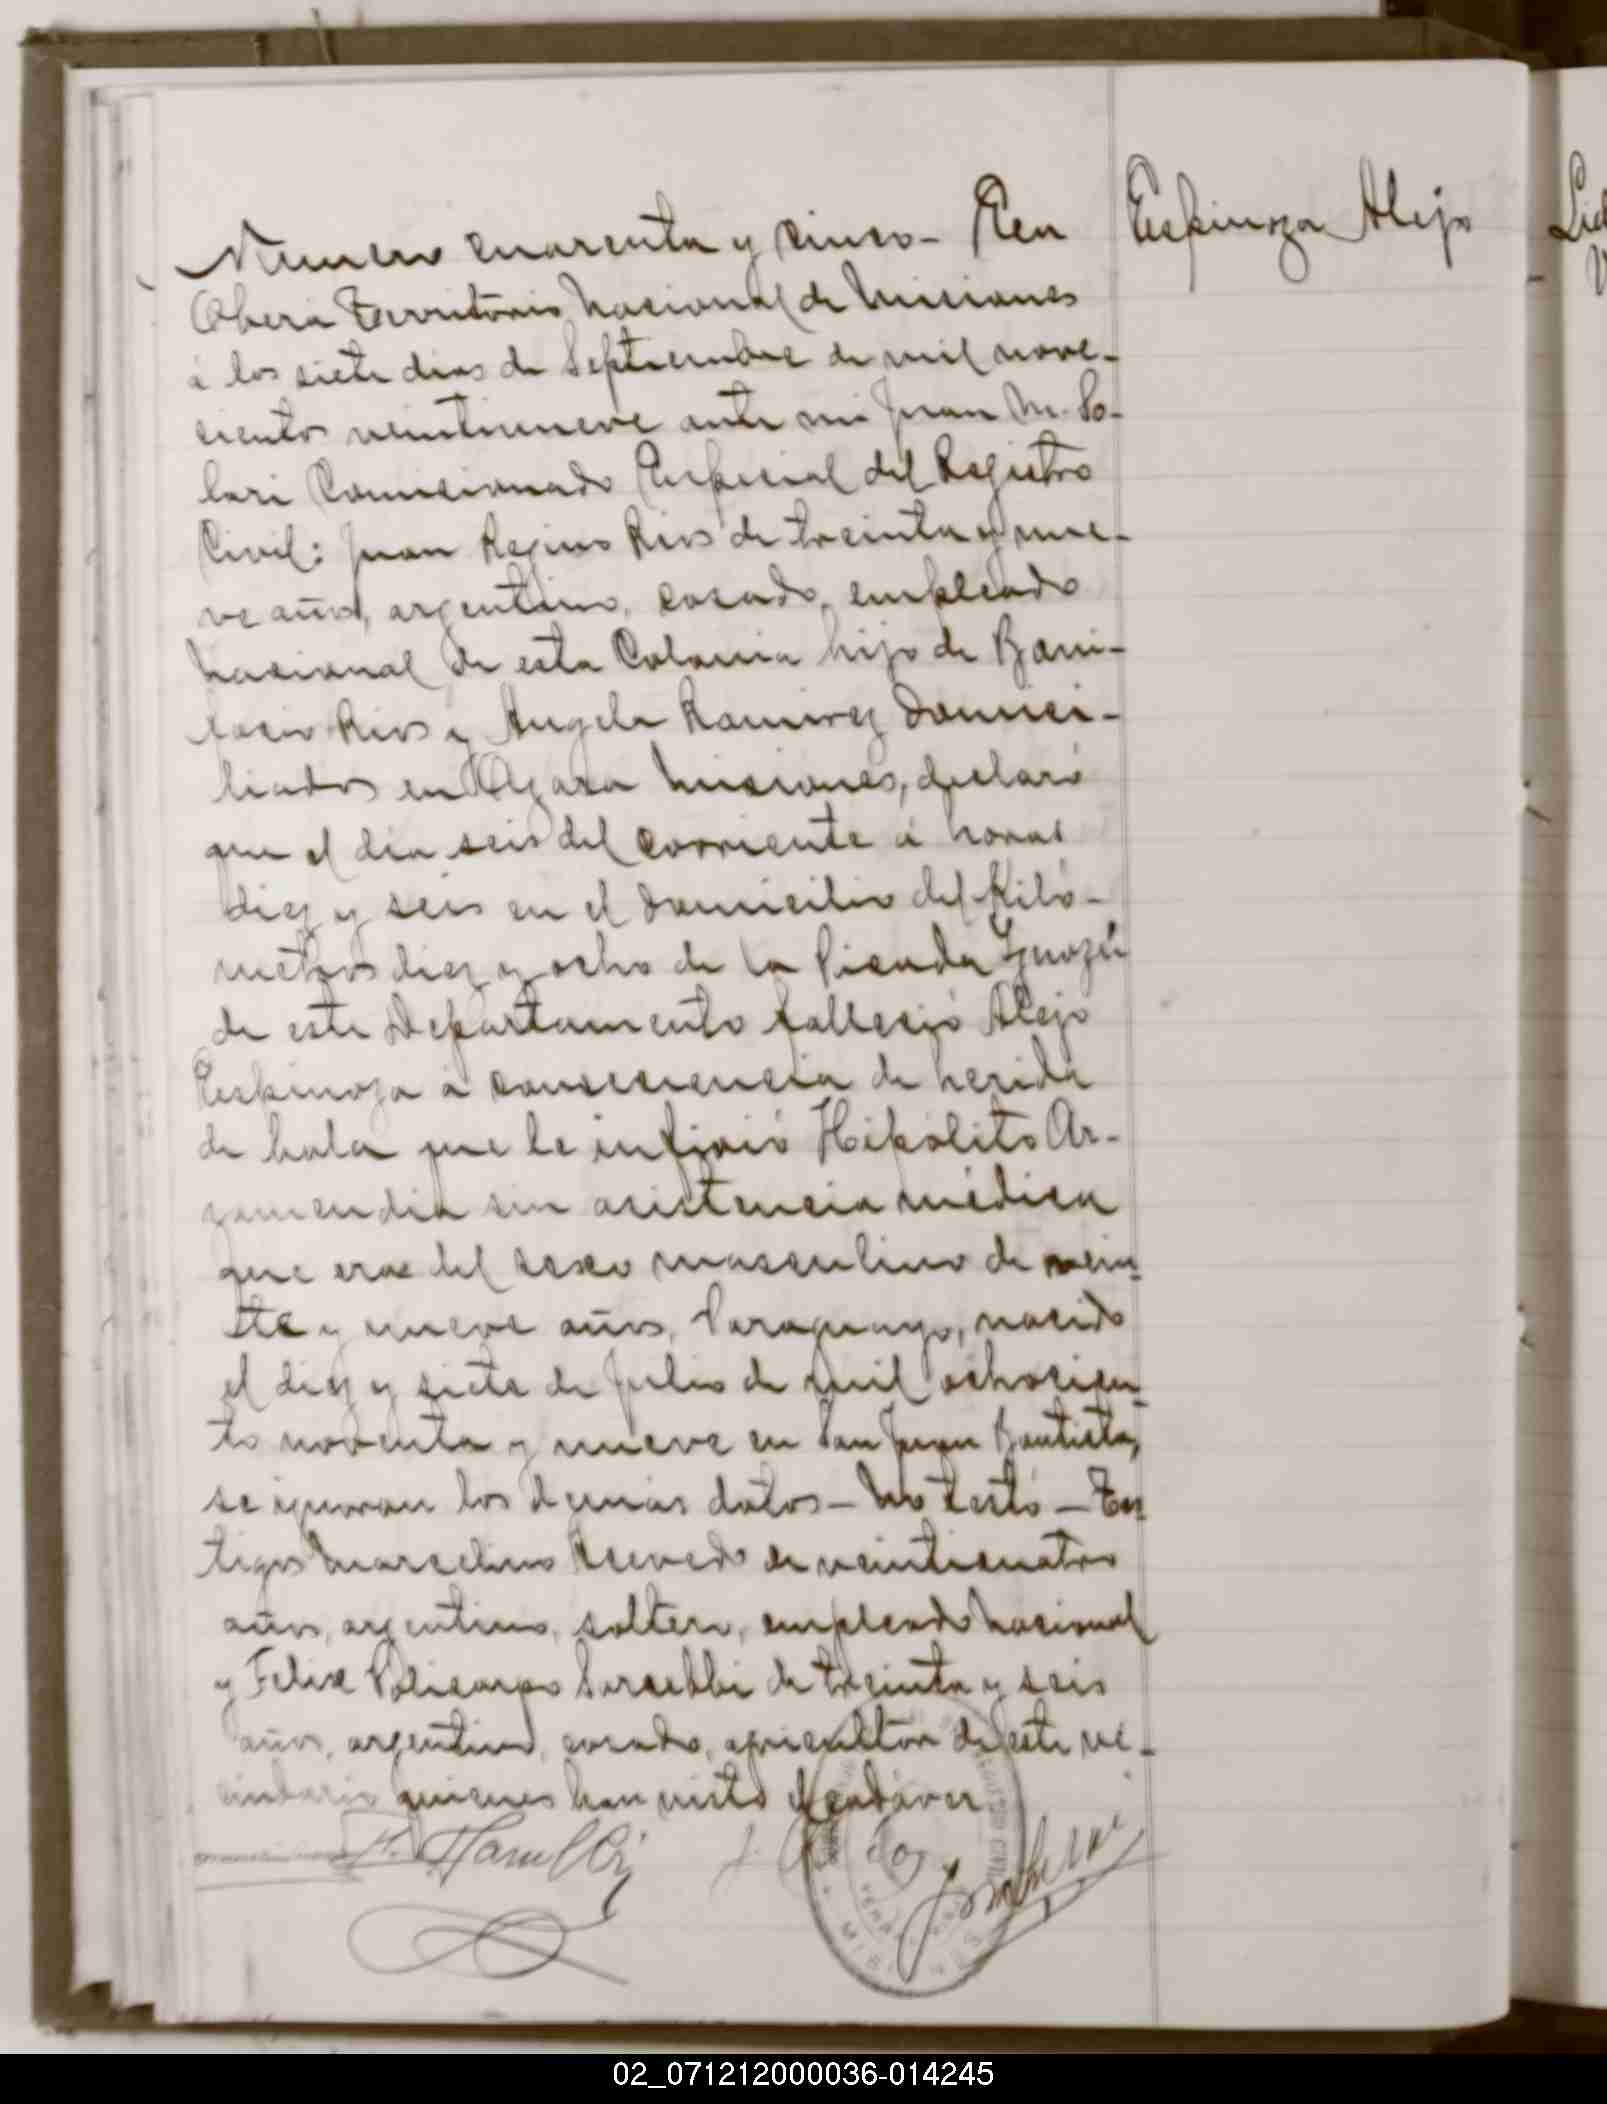 Numero cuarenta y cinco- En
Espinoza Alejo
Obera Territorio Nacional de Misiones
á los siete dias de Septiembre de mil nove-
cientos veintinueve ante mi Juan M. So-
lari Comisionado Especial del Registro
Civil: Juan Regino Rios de treinta y nue-
ve años, argentino, casado, empleado
Nacional de esta Colonia hijo de Boni-
facio Rios y Angela Ramirez domici-
liados en Azara Misiones, declaró
que el dia seis del corriente á horas
diez y seis en el domicilio del Kiló-
metros diez y ocho de la Picada
de este Departamento falleció Alejo
Espinoza á consecuencia de herida
de bala que le infirió Hipólito Ar-
zamendia sin asistencia médica
que era del sexo masculino de vein-
te y nueve años, Paraguayo, nacido
el diez y siete de Julio de mil ochocien-
to noventa y nueve en San Juan Bautista,
se ignoran los demás datos - No testó - Tes-
tigos Marcelino Acevedo de veinticuatro
años, argentino, soltero, empleado Nacional
y Felix Policarpo de treinta y seis
años, argentino, casado, agricultor de este ve-
cindario quienes han visto el cadáver
MISIONES
02_071212000036-014245